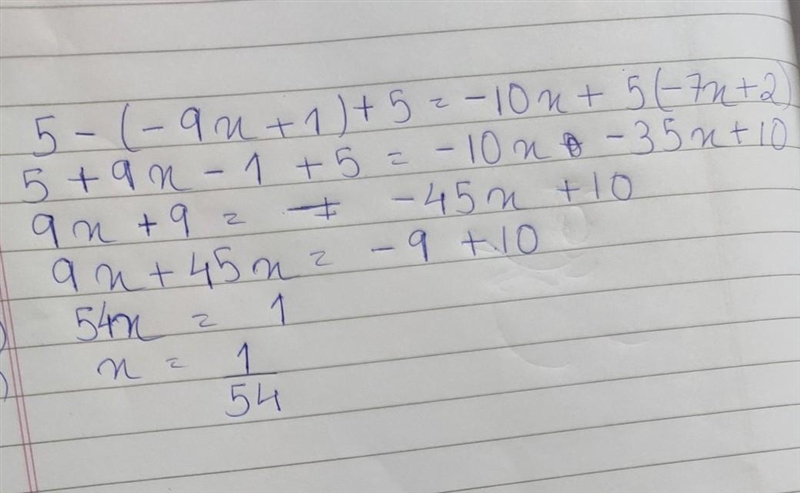 5 - (-9x + 1) + 5 = -10x + 5(-7x+2)
5 + 9x - 1 + 5 = -10x - 35x + 10
9x + 9 = -45x + 10
9x + 45x = -9 + 10
54x = 1
x = 1/54